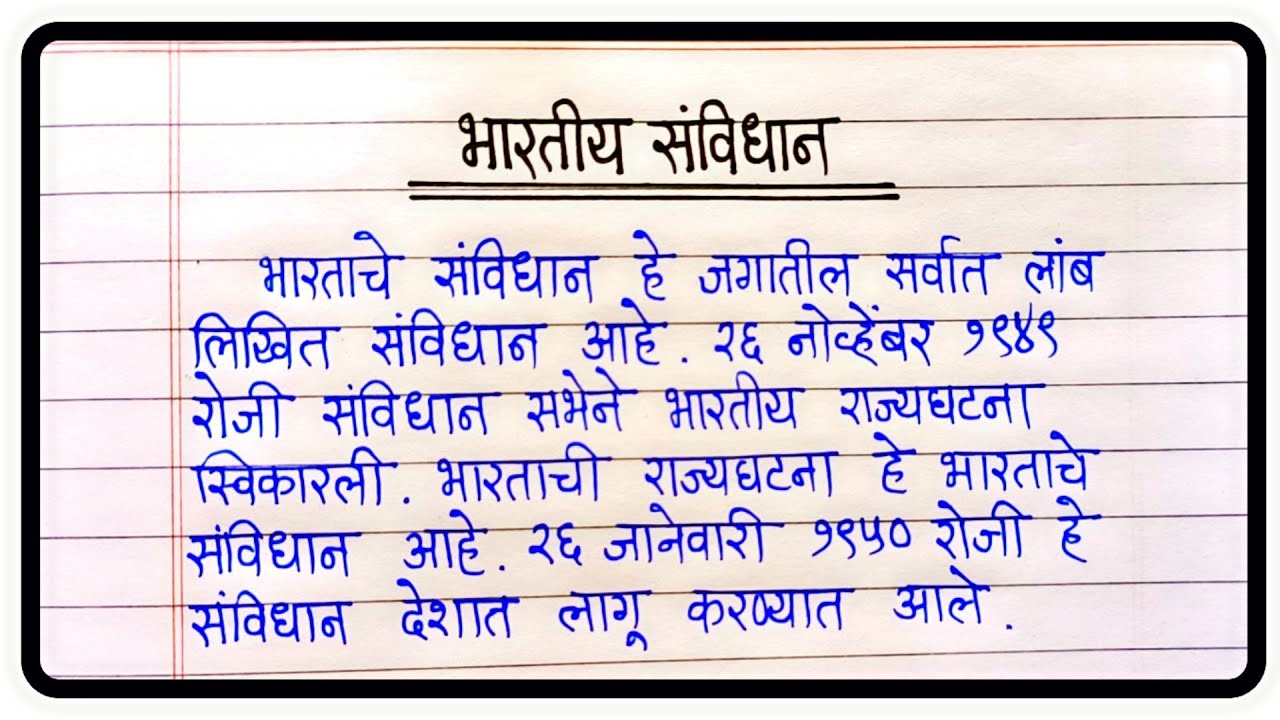 भारतीय संविधान
भारताचे संविधान हे जगातील सर्वात लांब
लिखित संविधान आहे. २६ नोव्हेंबर १९४९
रोजी संविधान सभेने भारतीय राज्यघटना
स्विकारली. भारताची राज्यघटना हे भारताचे
संविधान आहे. २६ जानेवारी १९५० रोजी हे
संविधान देशात लागू करण्यात आले.